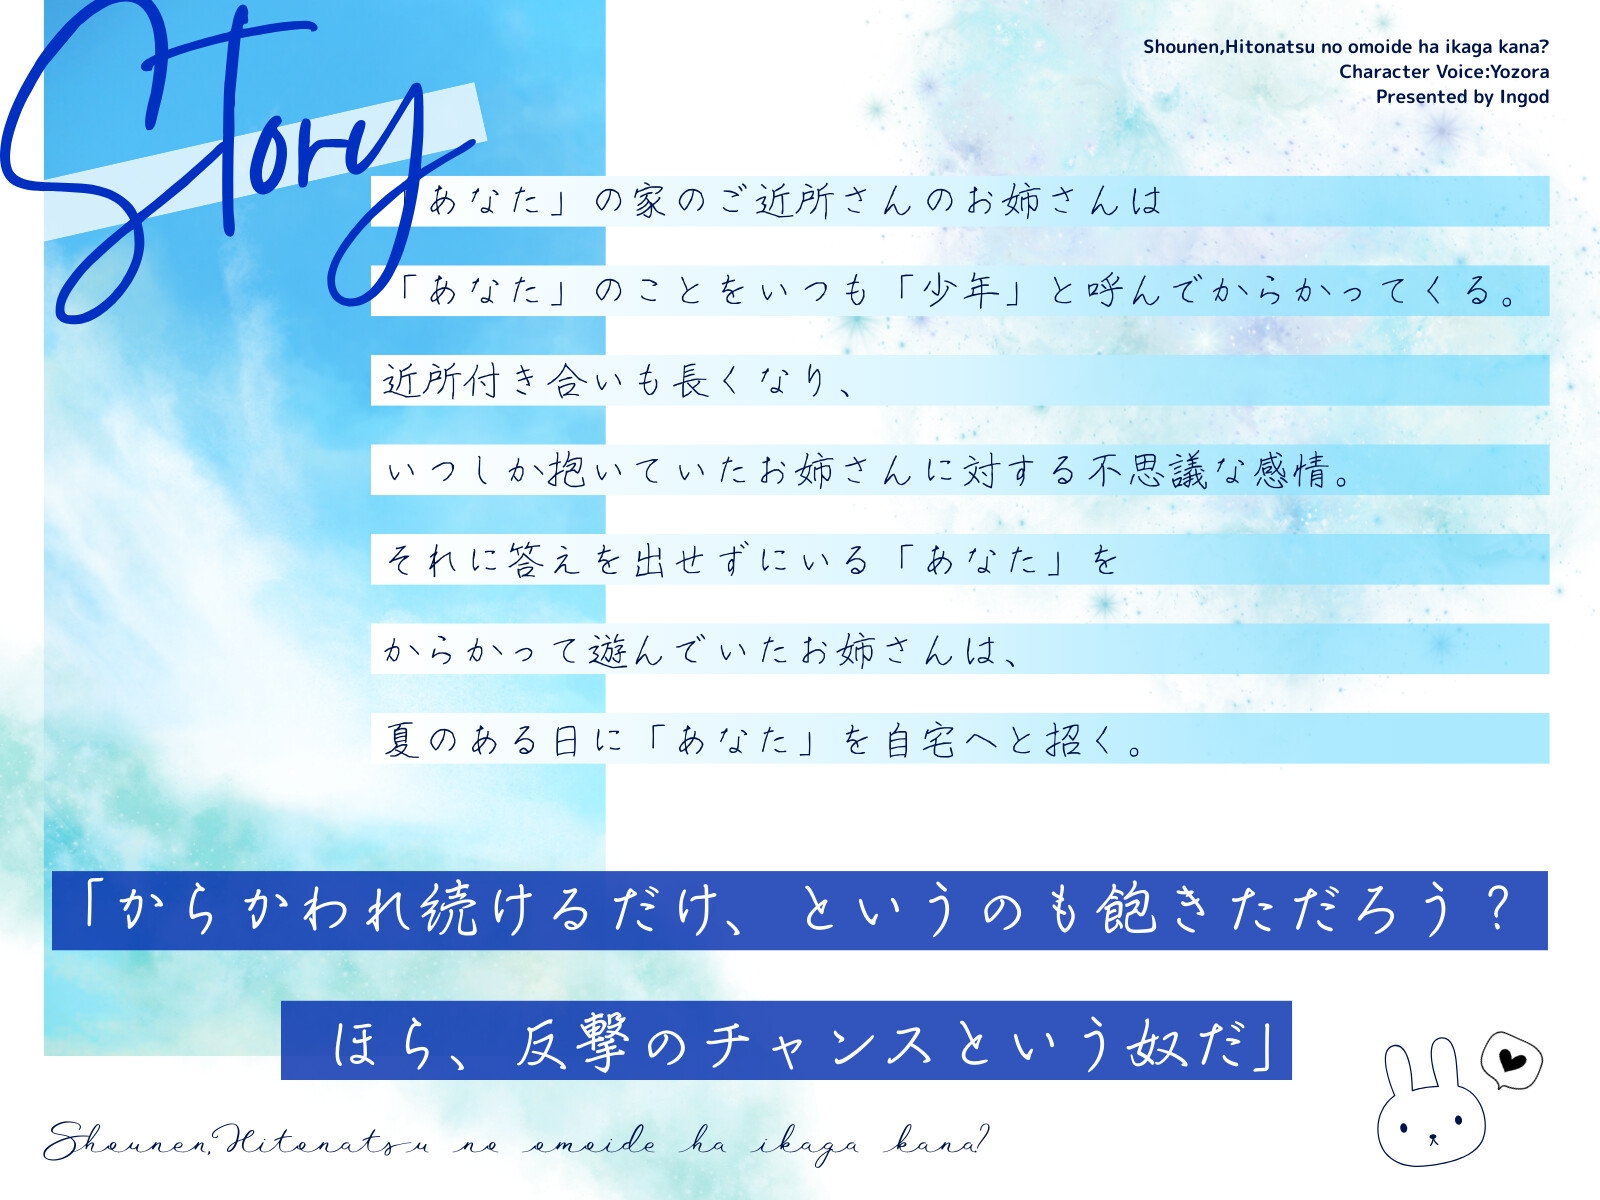 Story
Shounen,Hitonatsu no omoide ha ikaga kana?
Character Voice:Yozora
Presented by Ingod
「あなた」の家のご近所さんのお姉さんは
「あなた」のことをいつも「少年」と呼んでからかってくる。
近所付き合いも長くなり、
いつしか抱いていたお姉さんに対する不思議な感情。
それに答えを出せずにいる「あなた」を
からかって遊んでいたお姉さんは、
夏のある日に「あなた」を自宅へと招く。
「からかわれ続けるだけ、というのも飽きただろう？
ほら、反撃のチャンスという奴だ」
Shounen,Hitonatsu no omoide ha ikaga kana?